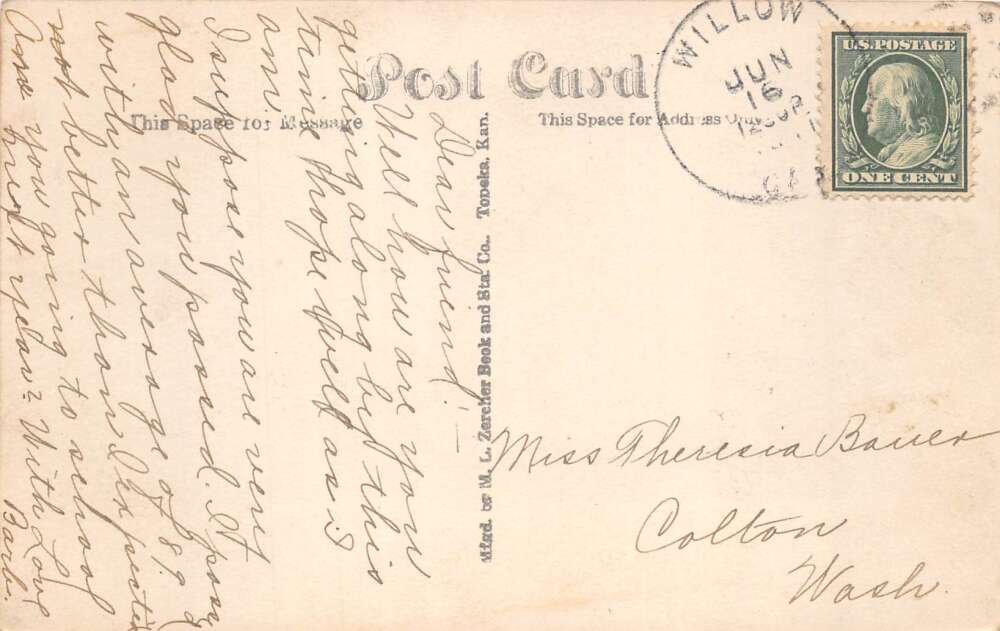 Post Card
This Space for Message
This Space for Address Only
WILLOW
JUN
16
CA
U.S. POSTAGE
ONE CENT
Mfgd. by M. L. Zercher Book and Sta. Co., Topeka, Kan.
Dear friend!
Well how are you
getting along by this
time I hope well as is
am.
I suppose you are very
glad you passed. I pass
with an average of 89. I
not better than I expected
Are you going to school
next year? With Love
Barb.
Miss Theresia Bauer
Colton
Wash.